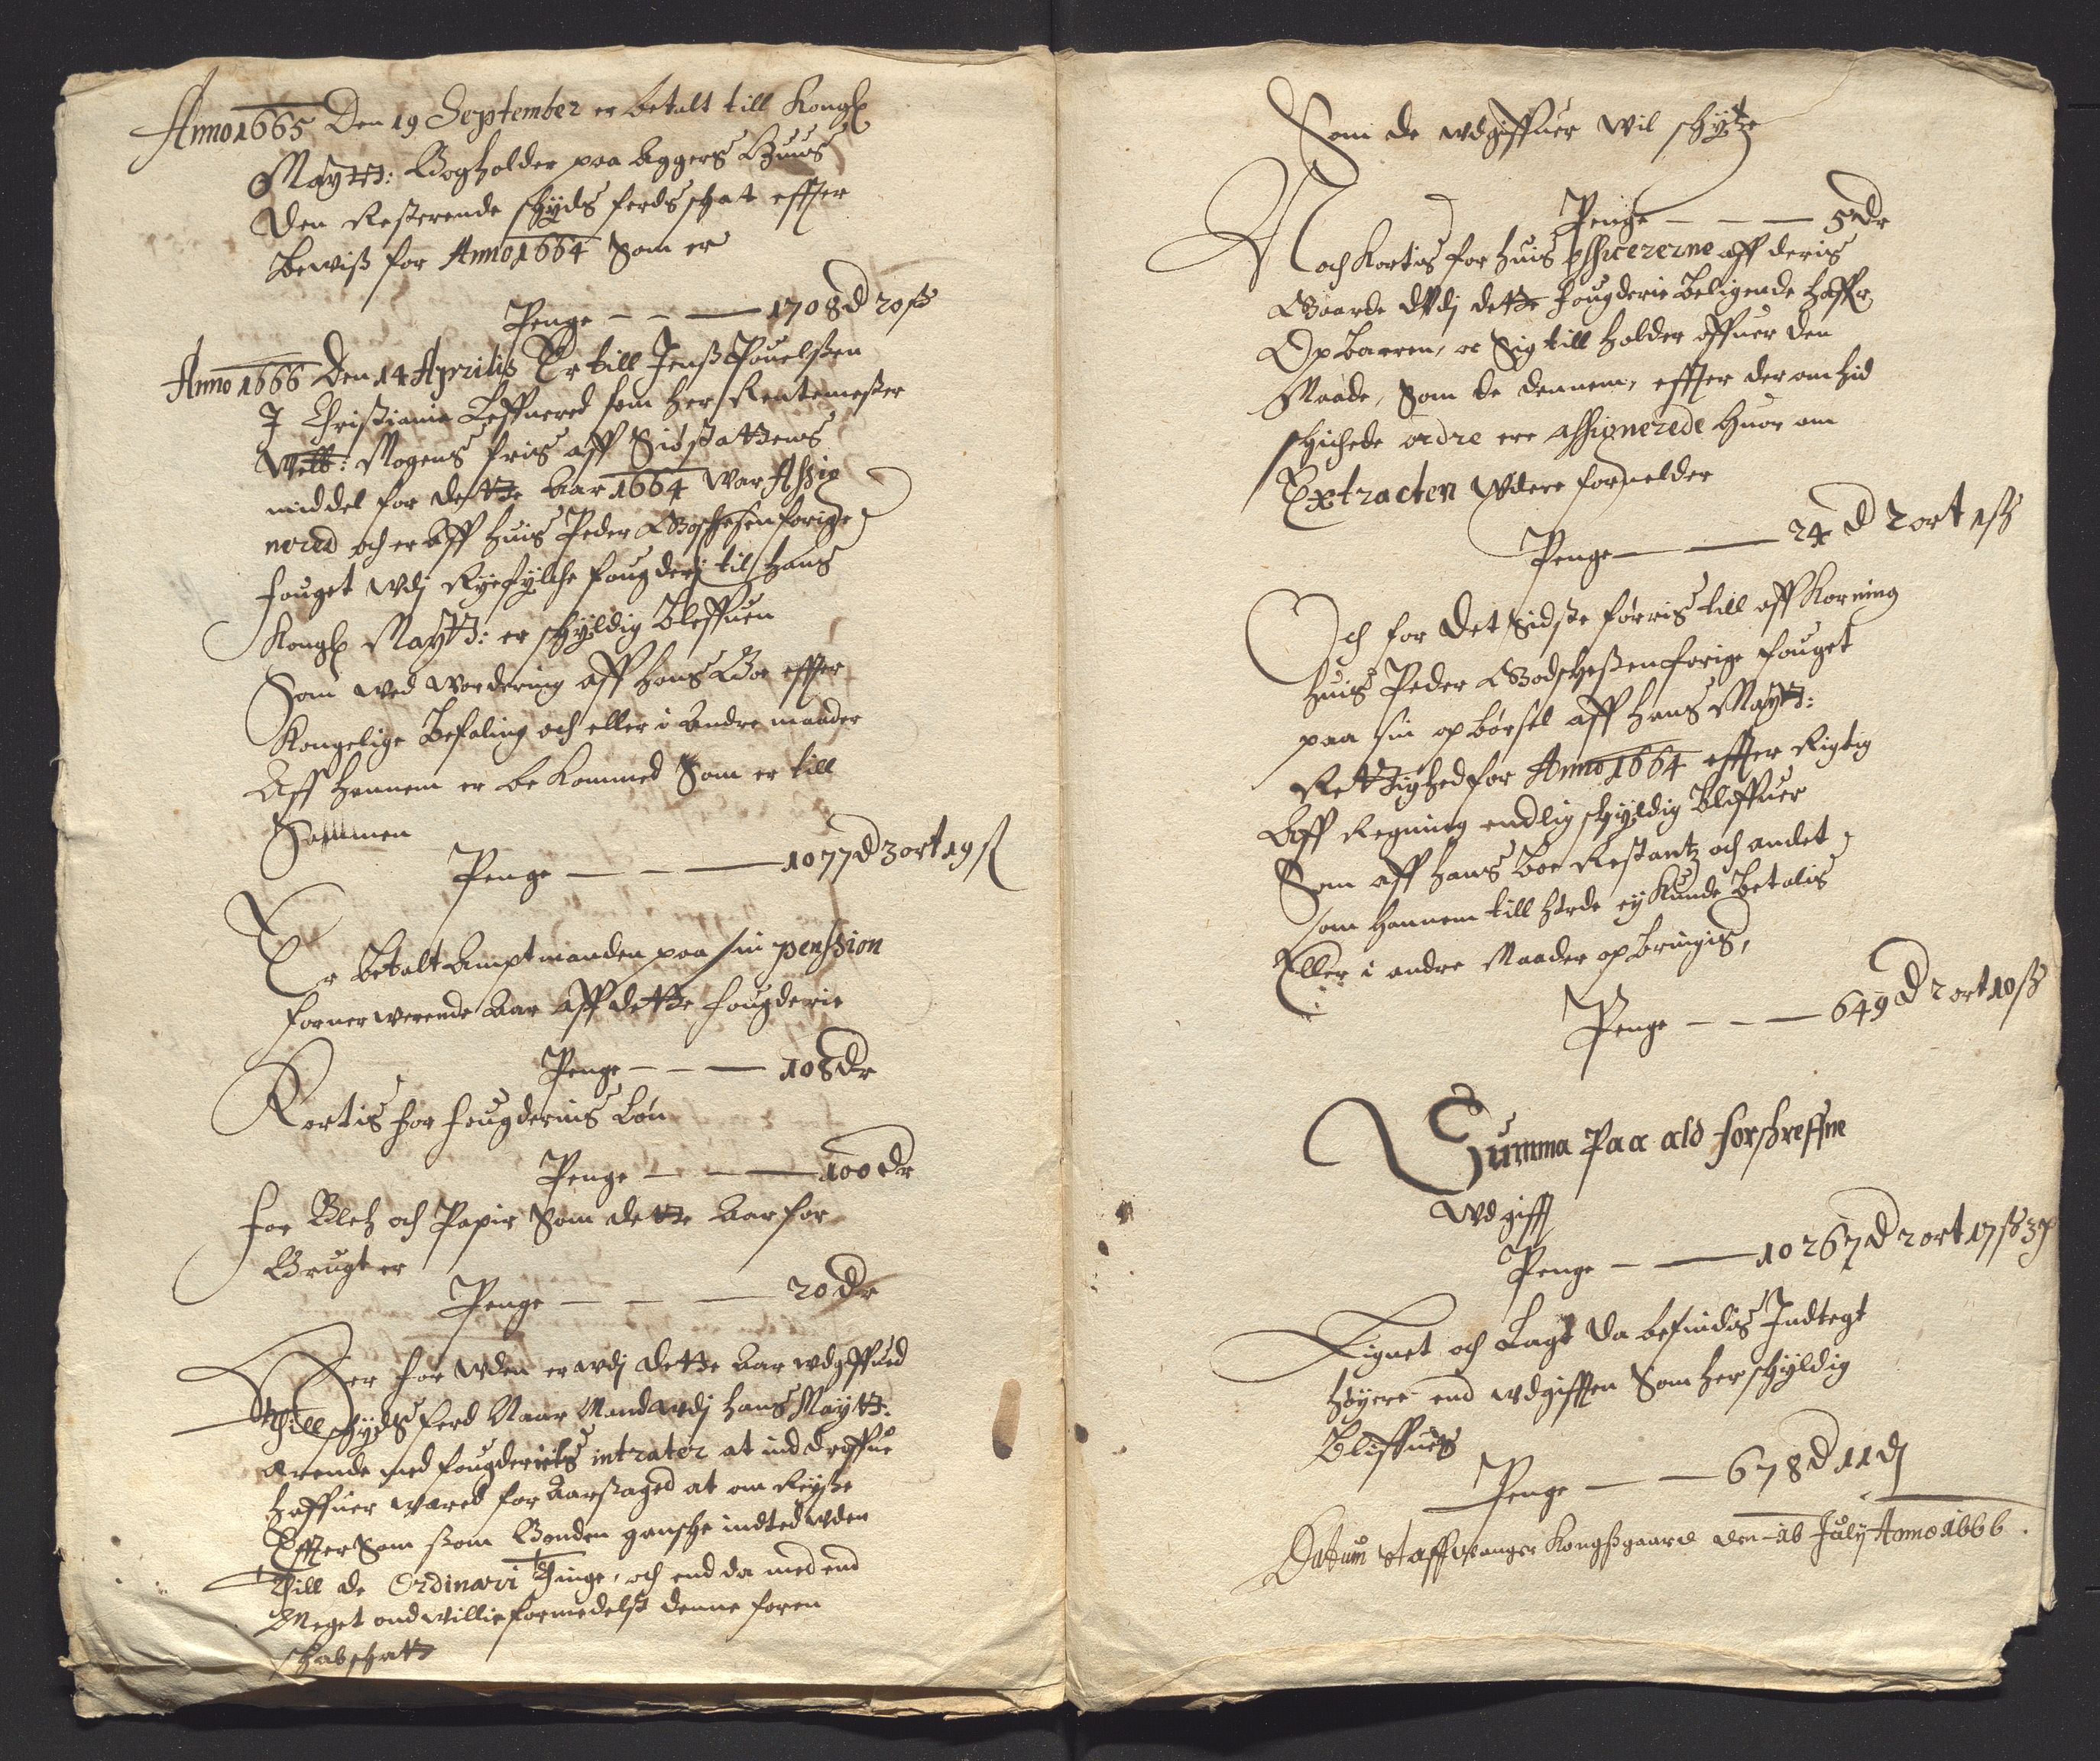 Anno 1665 Den 19 September er betalt till Kongl
Maytt: Bogholder paa Aggers Huus
den Resterende schyds ferds schat effter
beviss for Anno 1664 Som er
Penge — — — 1708 d 20 ß
Anno 1666 Den 14 Aprilis Er till Jenss Pouelssen
J Christiania Leffuered som her Rentemester
Welb: Mogens friis aff Sidstattens
middel for dette Aar 1664 war Assig
nered och er Aff huis Peder Godschesen forige
fouget wdj Ryefylche fougderj til hans
Kongl Maytt: er schyldig bleffuen
Som wed wordering aff hans Boe effter
Kongelige Befaling och eller i Andre maader
Aff hannem er be kommed Som er till
Sammen
Penge — — — 1077 d 3 ort 19 ß
Er betalt Amptmanden paa sin penssion
forner werende Aar Aff dette fougderie
Penge — — — 108 dr
Kortis for fougderiis Løn
Penge — — — 100 dr
for Bleh och Papir Som dette Aar for
Brugt er
Penge — — — 20 dr
Her for uden er wdj dette Aar wdgiffued
Thill schyds ferd Naar Mand wdj hans Maytt:
Ærende med fougderiets intrater at ind driffue
haffuer wered for Aarsaged at om Reysse
Effter Som ssom Bonden gansche indted uden
Thill de Ordinari Thinge, och end da med end
Meget ond willie formedelst denne foren
schabschatt
Som de wdgiffuer wil schytze
Penge — — — 5 dr
Noch Kortis for huis officererne aff deris
Gaarde Udj dette fougderie beligende haffr
Op baaren, oc Sig till holder offuer den
Maade, Som de dennem, effter der om hid
schichede ordre ere assignerede huor om
Extracten Videre formelder
Penge — — 24 d 2 ort 1 ß
Och for det Sidste førris till aff Korning
huis Peder Godschessen forige fouget
paa sin opbørsel aff hans Maytt:
Rettighed for Anno 1664 effter Rigtig
Aff Regning endlig schyldig bliffuer
Som aff hans boe Restantz och andet
som hannem till hørde ey Kunde betalis
Eller i andre Maader op bringis,
Penge — — — 649 d 2 ort 10 ß
Summa Paa ald forschreffne
Wdgifft
Penge — — 10267 d 2 ort 17 ß 3 p
Lignet och Lagt da befindis Indtegt
høyere end wdgifften Som her schyldig
Bliffues
Penge — — 678 d 11 ß
Datum Staffwanger Kongssgaard den 16 July Anno 1666.